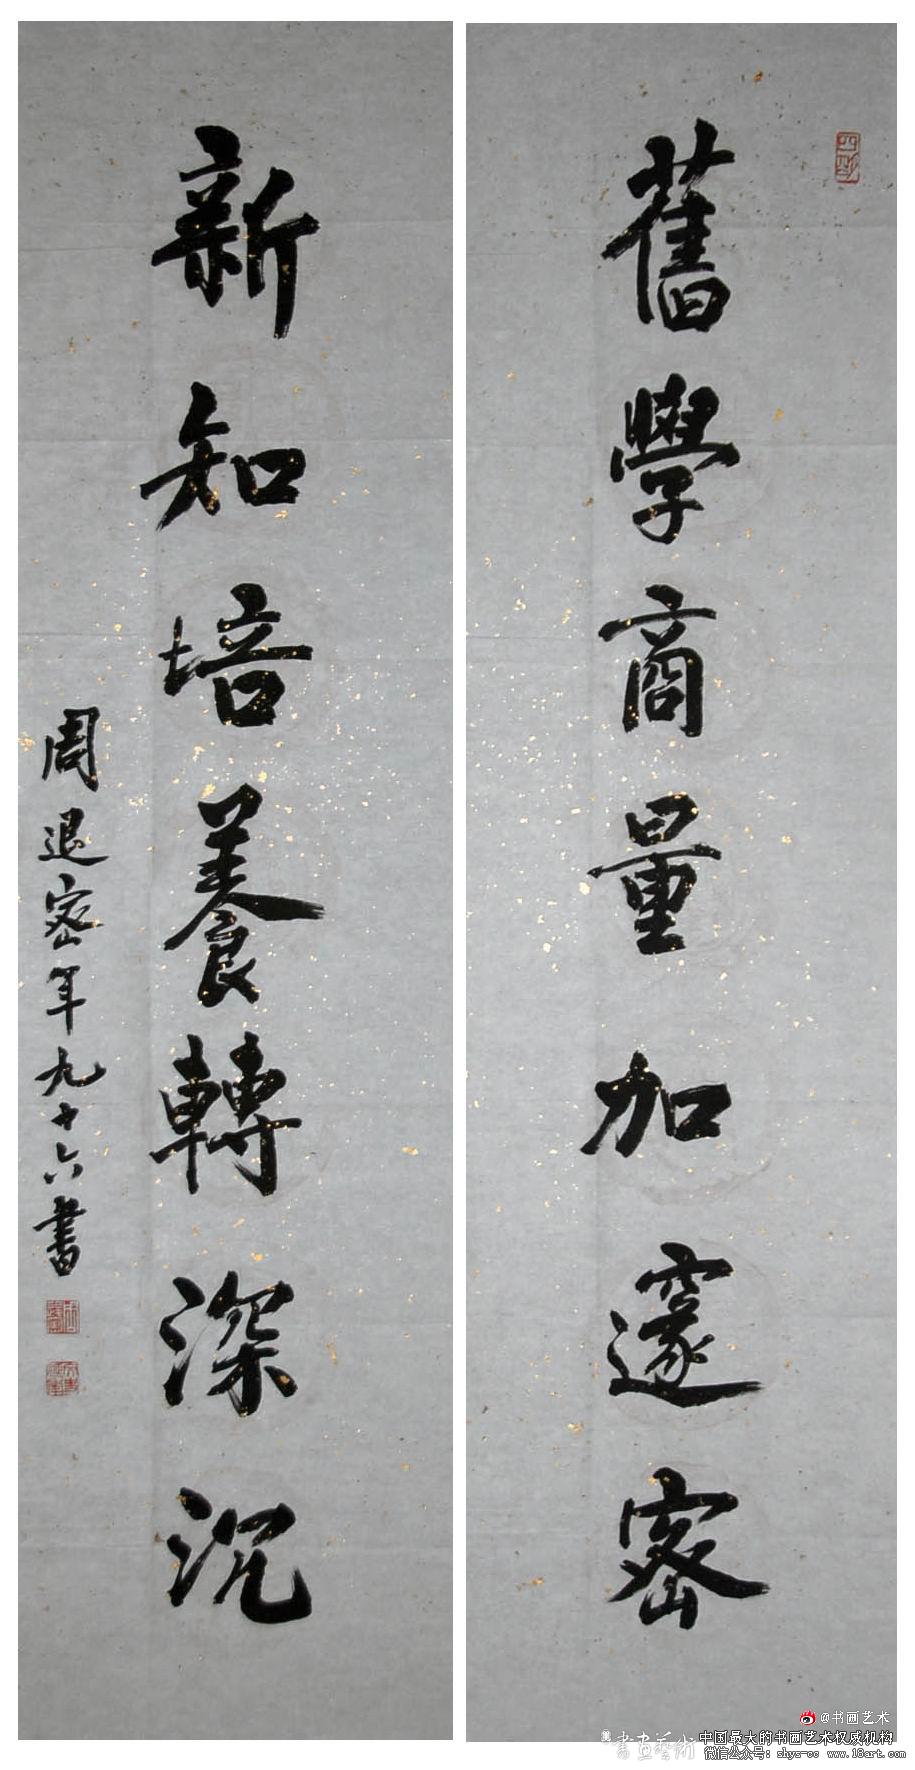 舊學商量加邃密
新知培養轉深沉
周退密年九十六書
@书画艺术
書畫藝術
中国最大的书画艺术权威机构
微信公众号：shys-cc www.18art.com